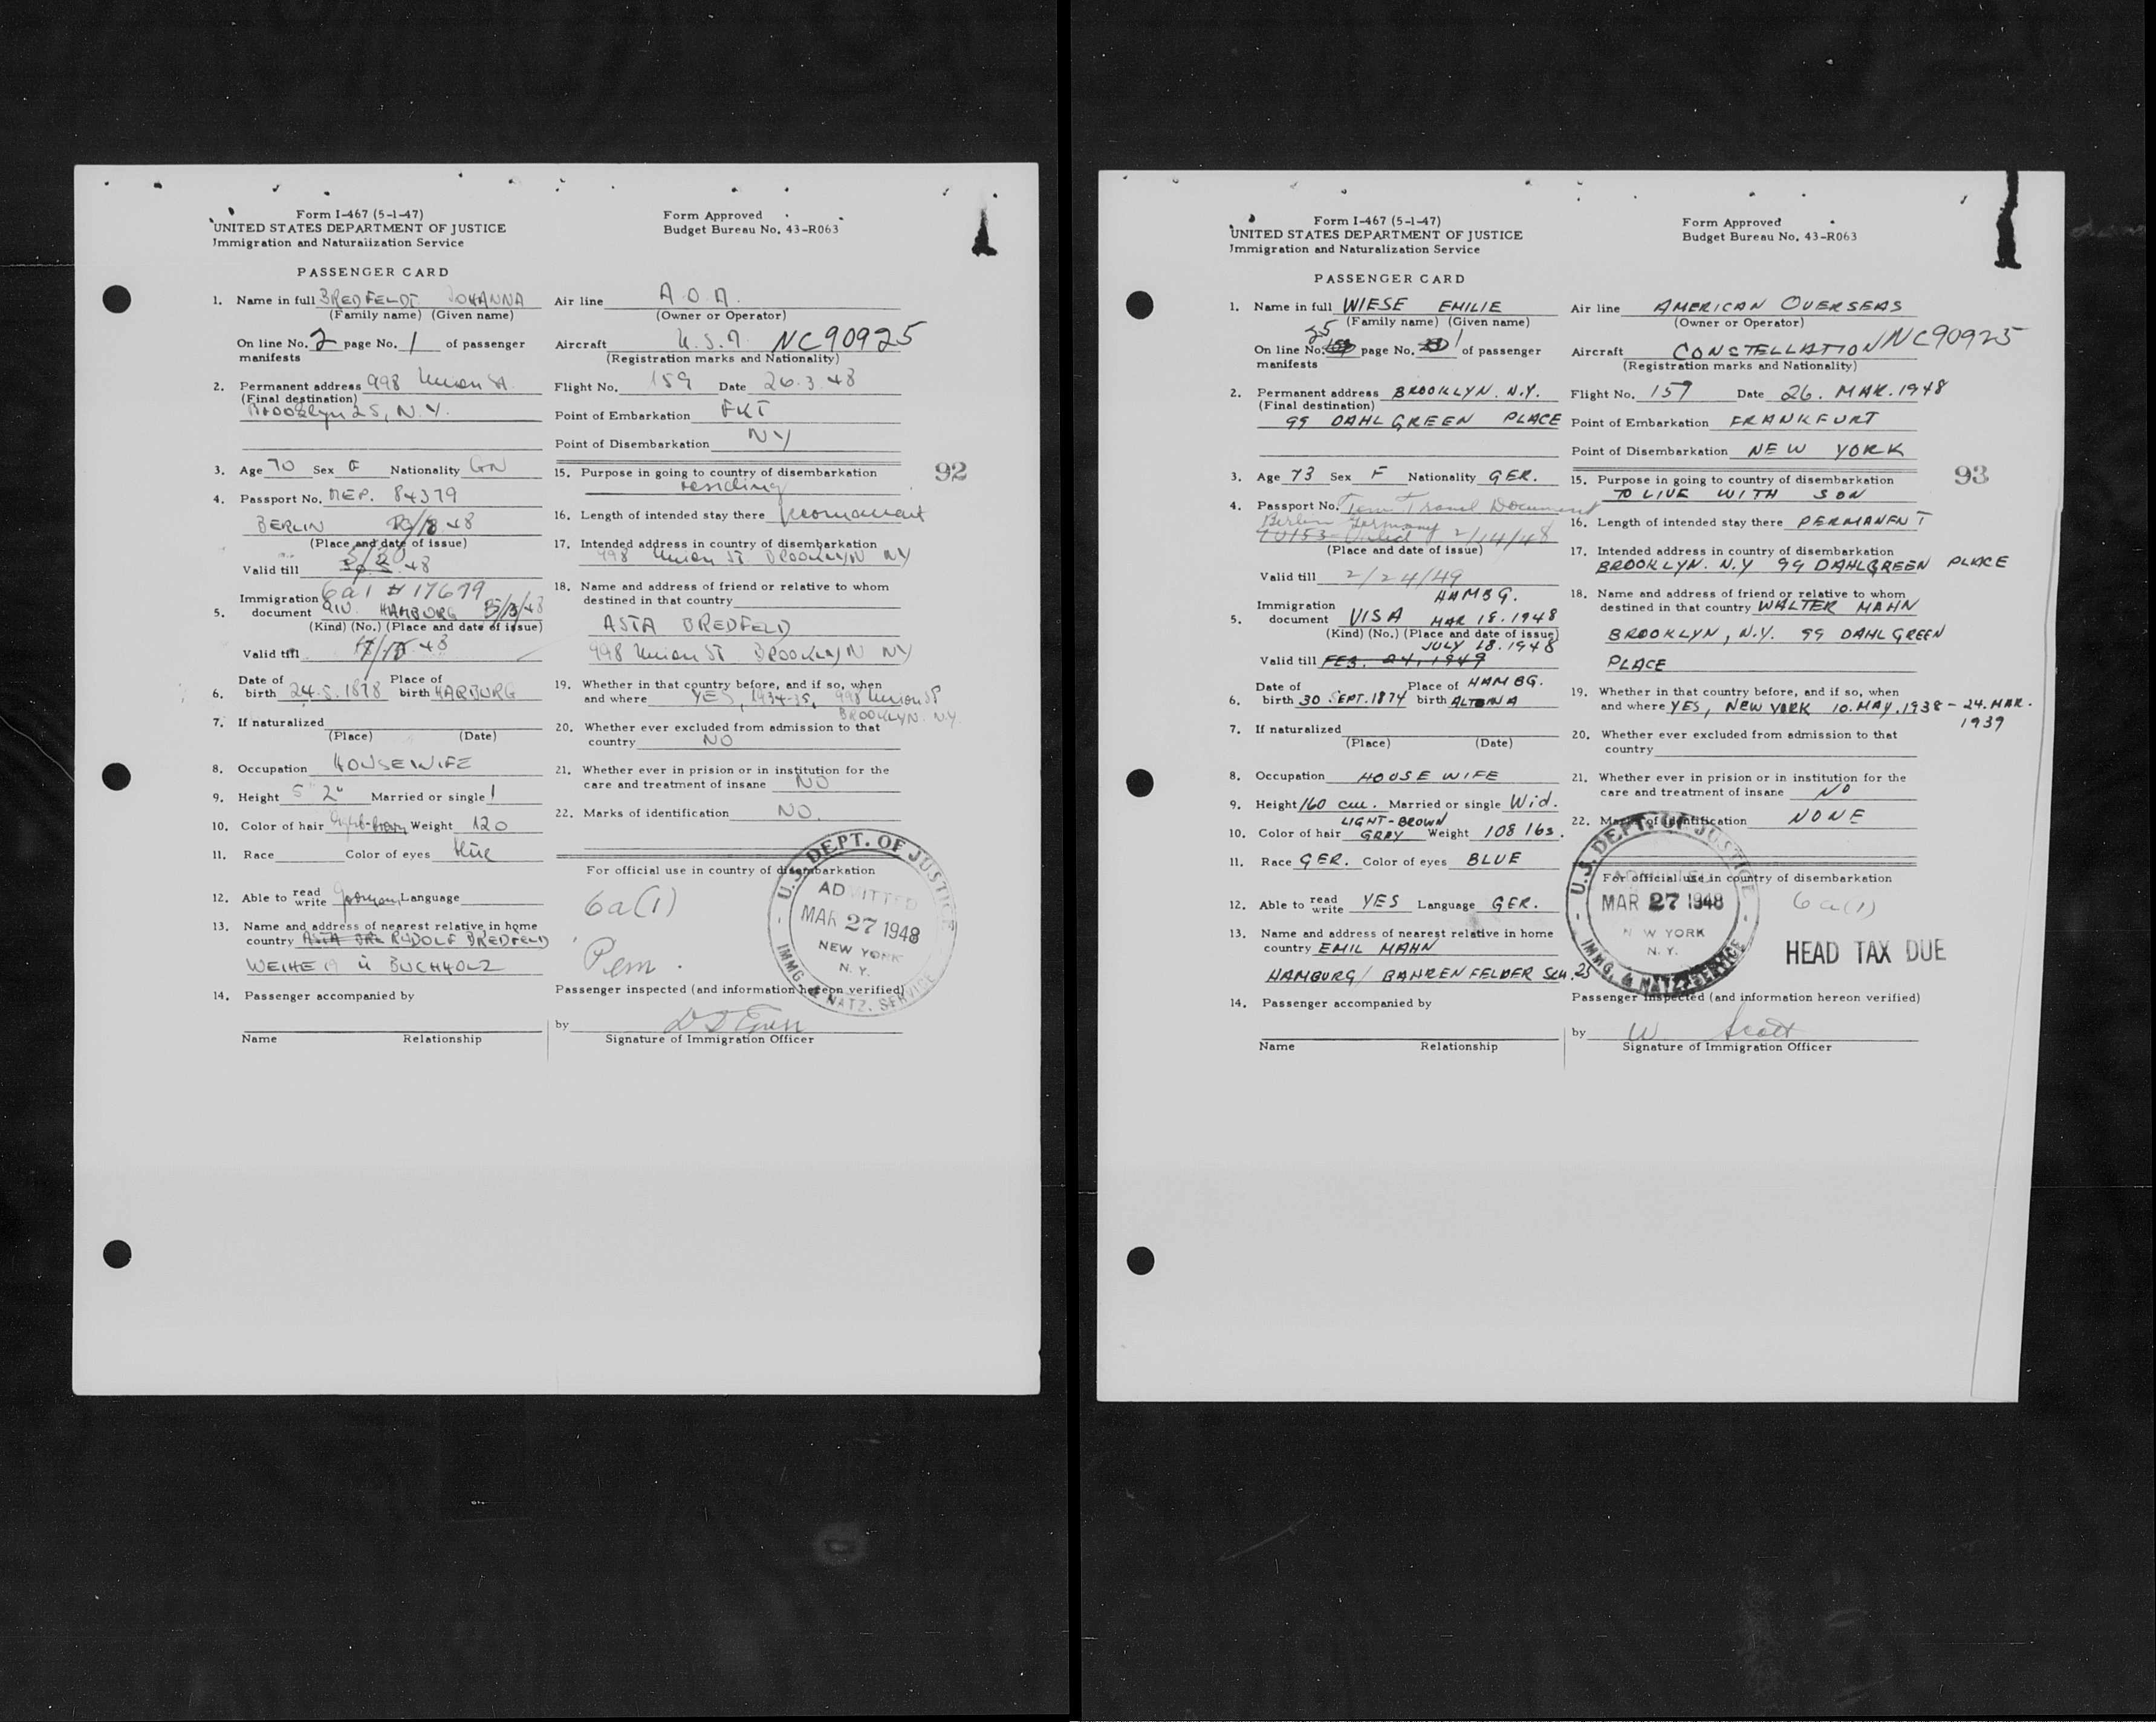 Form I-467 (5-1-47)
UNITED STATES DEPARTMENT OF JUSTICE
Immigration and Naturalization Service
Form Approved
Budget Bureau No. 43-R063
PASSENGER CARD
1. Name in full BREDFELDT JOHANNA
(Family name) (Given name)
On line No. 2 page No. 1 of passenger
manifests
2. Permanent address 998 Union St.
(Final destination)
Brooklyn 25, N.Y.
3. Age 70 Sex F Nationality GN
4. Passport No. MEP. 84379
BERLIN 48
(Place and date of issue)
Valid till 48
6a1 # 17679
Immigration
5. document QIV. HAMBURG
(Kind) (No.) (Place and date of issue)
Valid till 48
6. Date of birth 24.5.1878 Place of birth HARBURG
7. If naturalized
(Place) (Date)
8. Occupation HOUSEWIFE
9. Height 5' 2" Married or single
10. Color of hair Weight 120
11. Race Color of eyes blue
12. Able to read write German Language
13. Name and address of nearest relative in home
country RUDOLF BREDFELD
WEIHE ü BUCHHOLZ
14. Passenger accompanied by
Name Relationship
Air line A.O.A.
(Owner or Operator)
Aircraft U.S.A. NC90925
(Registration marks and Nationality)
Flight No. 159 Date 26.3.48
Point of Embarkation FKT
Point of Disembarkation NY
92
15. Purpose in going to country of disembarkation
residing
16. Length of intended stay there permanent
17. Intended address in country of disembarkation
998 Union ST BROOKLYN NY
18. Name and address of friend or relative to whom
destined in that country
ASTA BREDFELD
998 Union ST BROOKLYN NY
19. Whether in that country before, and if so, when
and where YES, 1934-35, 998 Union St
BROOKLYN. N.Y.
20. Whether ever excluded from admission to that
country NO
21. Whether ever in prision or in institution for the
care and treatment of insane NO
22. Marks of identification NO.
For official use in country of disembarkation
6a(1)
Pem.
U.S. DEPT. OF JUSTICE
ADMITTED
MAR 27 1948
NEW YORK
N.Y.
IMMG. & NATZ. SERVICE
Passenger inspected (and information hereon verified)
by
Signature of Immigration Officer
Form I-467 (5-1-47)
UNITED STATES DEPARTMENT OF JUSTICE
Immigration and Naturalization Service
Form Approved
Budget Bureau No. 43-R063
PASSENGER CARD
1. Name in full WIESE EMILIE
(Family name) (Given name)
25
On line No. page No. 1 of passenger
manifests
2. Permanent address BROOKLYN. N.Y.
(Final destination)
99 DAHLGREEN PLACE
3. Age 73 Sex F Nationality GER.
4. Passport No. Tem Travel Document
Berlin Germany
2/14/48
(Place and date of issue)
Valid till 2/24/49
HAMBG.
Immigration
5. document VISA MAR 18.1948
(Kind) (No.) (Place and date of issue)
JULY 18.1948
Valid till FEB. 24, 1949
6. Date of birth 30 SEPT.1874 Place of birth HAMBG. ALTONA
7. If naturalized
(Place) (Date)
8. Occupation HOUSE WIFE
9. Height 160 cm. Married or single Wid.
LIGHT-BROWN
10. Color of hair GRAY Weight 108 lbs.
11. Race GER. Color of eyes BLUE
12. Able to read write YES Language GER.
13. Name and address of nearest relative in home
country EMIL MAHN
HAMBURG / BAHRENFELDER SCH. 25
14. Passenger accompanied by
Name Relationship
Air line AMERICAN OVERSEAS
(Owner or Operator)
Aircraft CONSTELLATION/NC90925
(Registration marks and Nationality)
Flight No. 159 Date 26. MAR. 1948
Point of Embarkation FRANKFURT
Point of Disembarkation NEW YORK
93
15. Purpose in going to country of disembarkation
TO LIVE WITH SON
16. Length of intended stay there PERMANENT
17. Intended address in country of disembarkation
BROOKLYN. N.Y 99 DAHLGREEN PLACE
18. Name and address of friend or relative to whom
destined in that country WALTER MAHN
BROOKLYN, N.Y. 99 DAHLGREEN
PLACE
19. Whether in that country before, and if so, when
and where YES, NEW YORK 10.MAY.1938 - 24.MAR.
1939
20. Whether ever excluded from admission to that
country
21. Whether ever in prision or in institution for the
care and treatment of insane NO
22. Marks of identification NONE
For official use in country of disembarkation
U.S. DEPT. OF JUSTICE
ADMITTED
MAR 27 1948
NEW YORK
N.Y.
IMMG. & NATZ. SERVICE
6a(1)
HEAD TAX DUE
Passenger inspected (and information hereon verified)
by W Scott
Signature of Immigration Officer